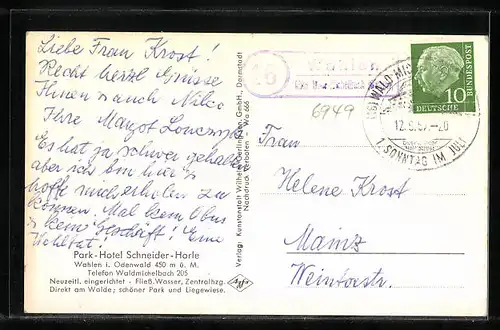 Liebe Frau Krost!
Recht herzl. Grüsse
Ihnen u. auch Nilco
Ihre Margot
Es hat ja schwer gehalten
aber ich bin hier u.
hoffe mich erholen zu
können. Mal kein Obus
u. kein Geschäft! Eine
Wohltat!
Park-Hotel Schneider-Horle
Wahlen i. Odenwald 450 m ü. M.
Telefon Waldmichelbach 205
Neuzeitl. eingerichtet - Fließ. Wasser, Zentralhzg.
Direkt am Walde; schöner Park und Liegewiese.
Verlag: Kunstanstalt Wilhelm Gerling Gmbh, Darmstadt
Nachdruck verboten Wa 666
16
Wahlen
6949
12.8.57.-20
1. SONNTAG IM JULI
10
DEUTSCHE
BUNDESPOST
Frau
Helene Krost
Mainz
Weintorstr.